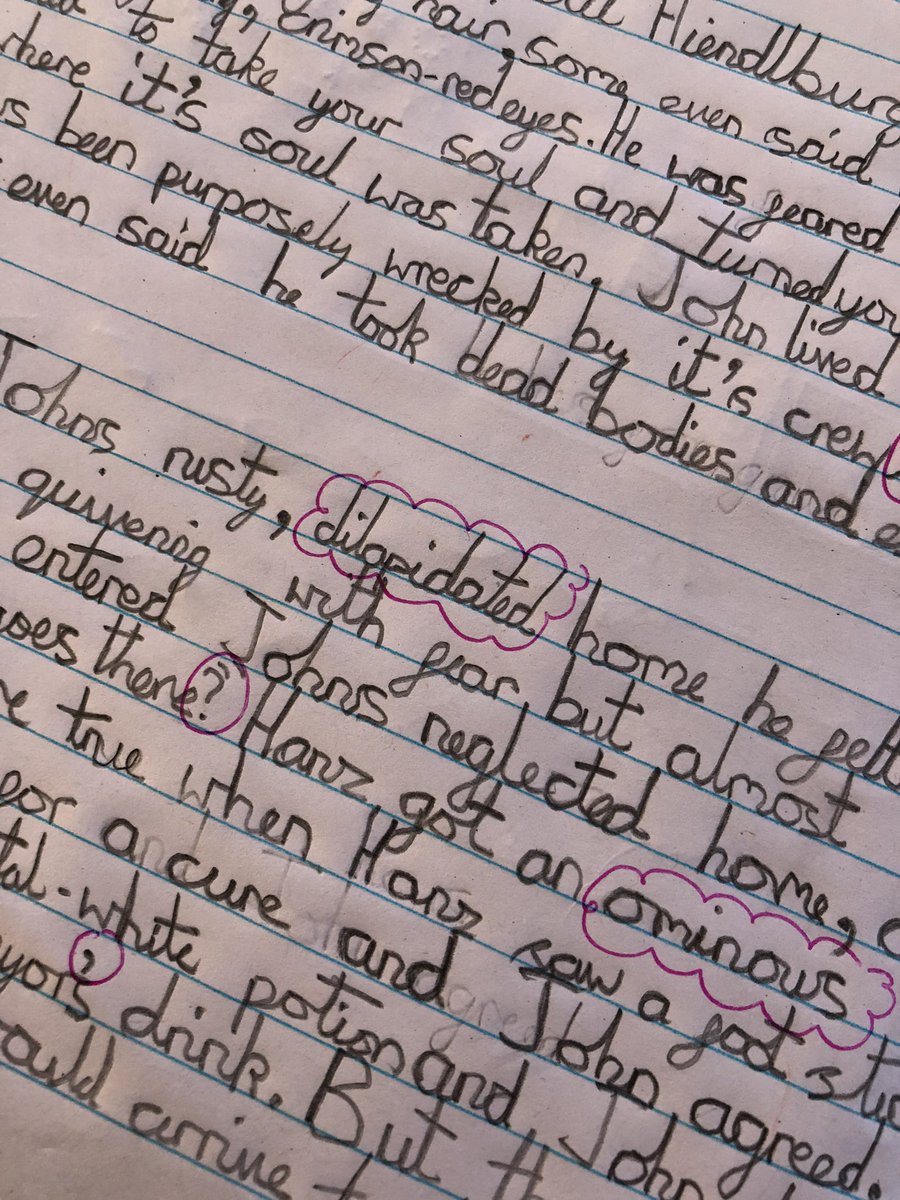 Hiendlburg
hair, some even said
crimson-red eyes. He was feared
to take your soul and turned you
here it's soul was taken. John lived
s been purposely wrecked by it's creh
even said he took dead bodies and e
Johns rusty, dilapidated home he felt
quivering with fear but almost
entered Johns neglected home,
uses there? Hanz got an ominous
e true when Hanz saw a got
for a cure and John agreed.
tal-white potion and John
yors drink. But th
ould arrive t